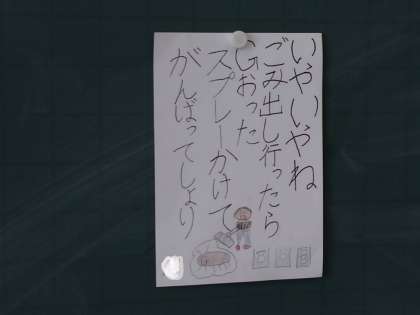 いやいやね
ごみ出し行ったら
Gおった
スプレーかけて
がんばってしょり